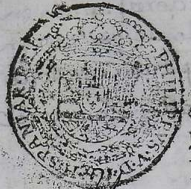 PHILIPPVS·V·D·
HISPANIAR·RE